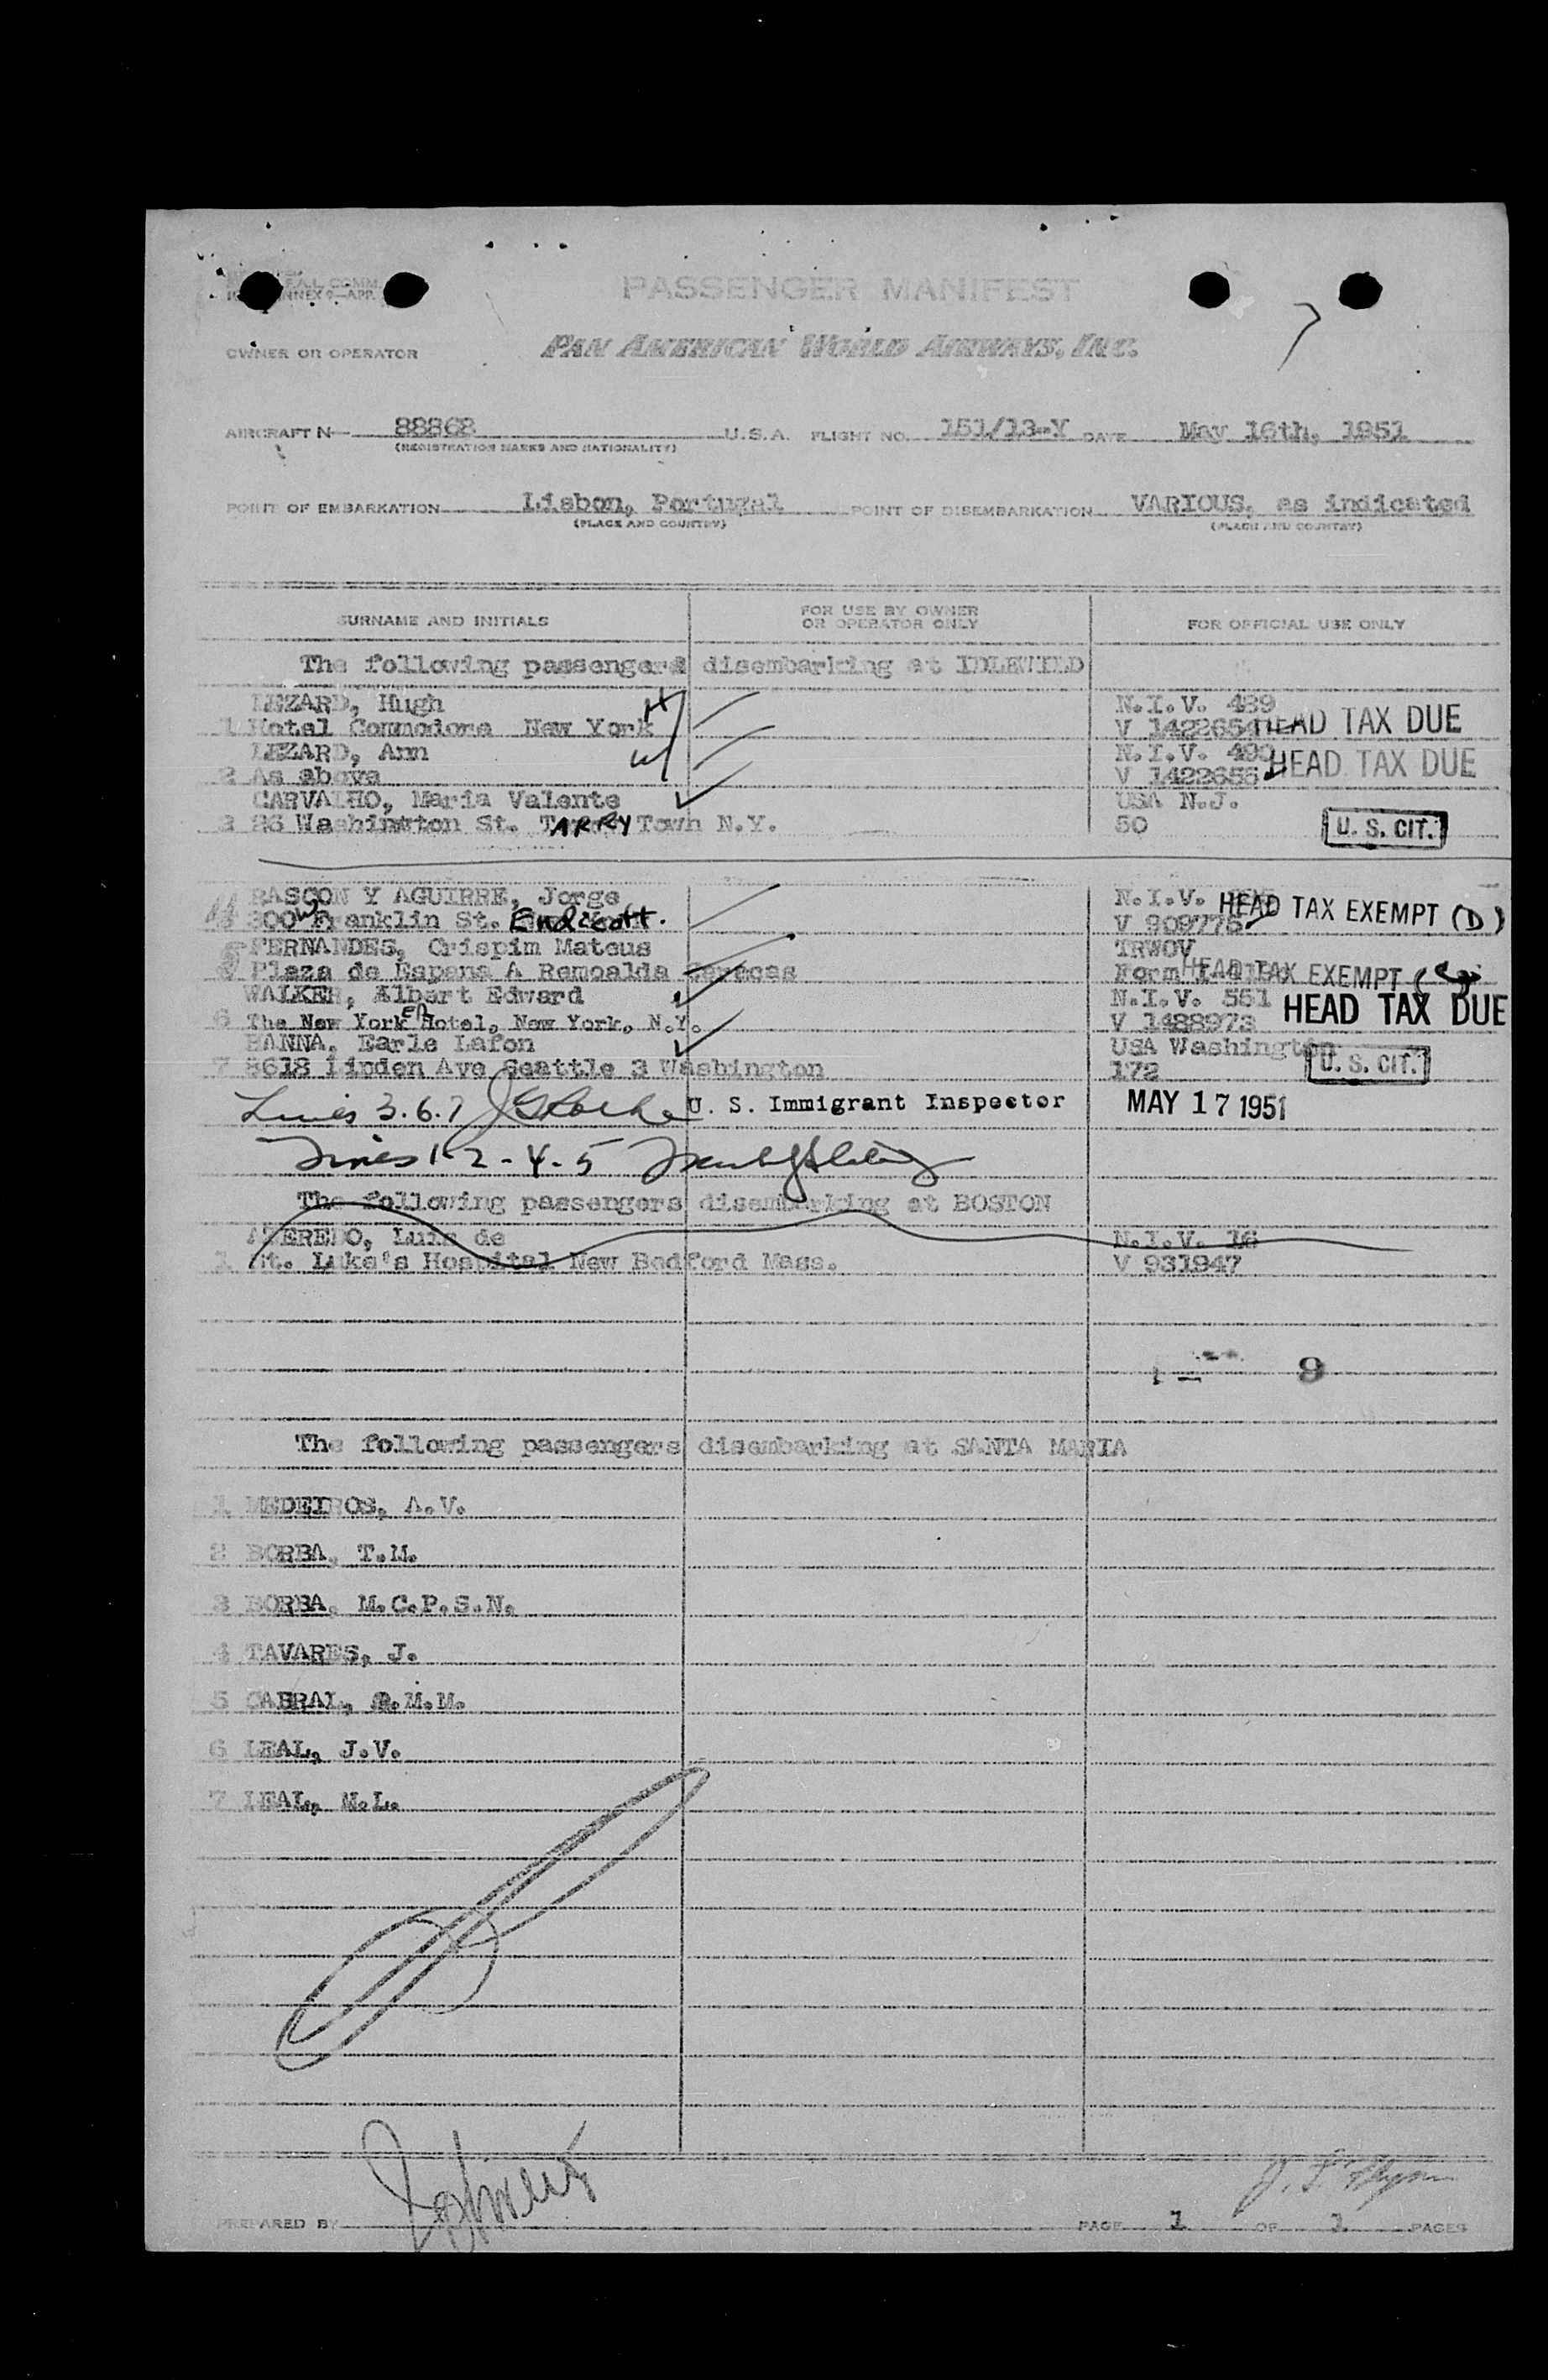 PASSENGER MANIFEST
OWNER OR OPERATOR PAN AMERICAN WORLD AIRWAYS, INC.
7
AIRCRAFT N— 88868 U.S.A. FLIGHT NO. 151/13-Y DATE May 16th, 1951
(REGISTRATION MARKS AND NATIONALITY)
POINT OF EMBARKATION Lisbon, Portugal POINT OF DISEMBARKATION VARIOUS, as indicated
(PLACE AND COUNTRY) (PLACE AND COUNTRY)
SURNAME AND INITIALS FOR USE BY OWNER OR OPERATOR ONLY FOR OFFICIAL USE ONLY
The following passengers disembarking at IDLEWILD
LEZARD, Hugh H N.I.V. 489
1 Hotel Commodore New York V 1422654 HEAD TAX DUE
LEZARD, Ann W N.I.V. 490
2 As above V 1422655 HEAD TAX DUE
CARVALHO, Maria Valente USA N.J.
3 26 Washington St. TARRY Town N.Y. 50 U. S. CIT.
BASCON Y AGUIRRE, Jorge N.I.V.
4 300 W Franklin St. Endicott. V 909775 HEAD TAX EXEMPT (D)
FERNANDES, Crispim Mateus TRWOV
5 Plaza de Espana A Remoalda Caracas Form HEAD TAX EXEMPT
WALKER, Albert Edward N.I.V. 551
6 The New Yorker Hotel, New York, N.Y. V 1488973 HEAD TAX DUE
HANNA, Earle Lafon USA Washington
7 8618 Linden Ave Seattle 3 Washington 172 U. S. CIT.
Lines 3.6.7 U. S. Immigrant Inspector MAY 17 1951
Lines 1-2-4-5
The following passengers disembarking at BOSTON
AZEREDO, Luis de N.I.V. 16
1 St. Luke's Hospital New Bedford Mass. V 931947
9
The following passengers disembarking at SANTA MARIA
1 MEDEIROS, A.V.
2 BORBA, T.M.
3 BORBA, M.C.P.S.N.
4 TAVARES, J.
5 CABRAL, M.M.
6 LEAL, J.V.
7 LEAL, M.L.
PREPARED BY PAGE 1 OF 1 PAGES